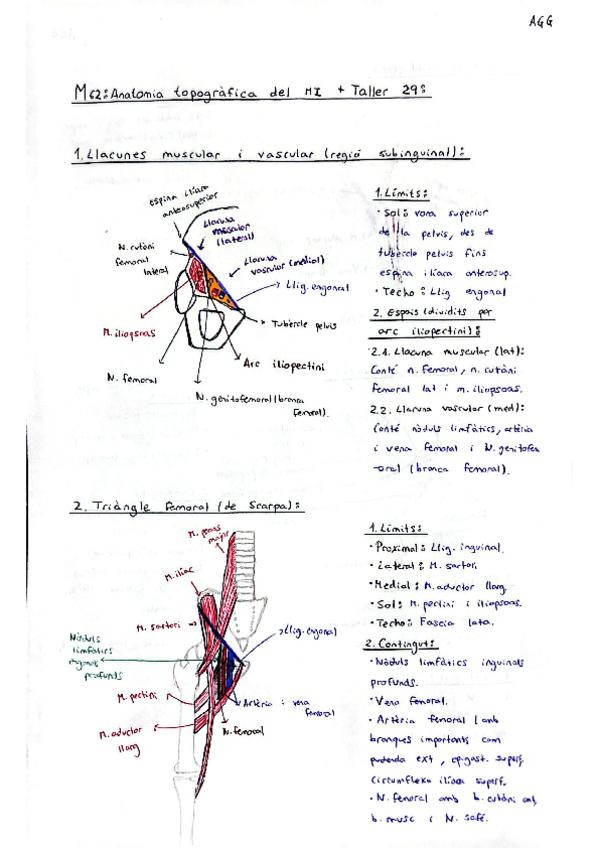 AGG
M62: Anatomia topogràfica del MI + Taller 29:
1. Llacunes muscular i vascular (regió subinguinal):
Espina ilíaca
anterosuperior
Llacuna
muscular
(lateral)
Llacuna
vascular (medial)
Llig. engonal
N. cutàni
femoral
lateral
M. iliopsoas
Tubercle pelvis
Arc iliopectini
N. femoral
N. genitofemoral (branca
femoral).
1. Límits:
· Sol: vora superior
de la pelvis, des de
tubercle pelvis fins
espina ilíaca anterosup.
· Techo: Llig engonal
2. Espais (dividits per
arc iliopectini):
2.1. Llacuna muscular (lat):
Conté n. femoral, n. cutàni
femoral lat i m. iliopsoas.
2.2. Llacuna vascular (med):
Conté nòduls limfàtics, artèria
i vena femoral i N. genitofem
-oral (branca femoral).
2. Triàngle femoral (de Scarpa):
M. psoas
major
M. ilíac
M. sartori
Llig. engonal
Nòduls
limfàtics
engonals
profunds
M. pectini
Artèria i vena
femoral
N. femoral
M. aductor
llarg
1. Límits:
· Proximal: Llig. inguinal.
· Lateral: M. sartori
· Medial: M. aductor llarg
· Sol: M. pectini i iliopsoas.
· Techo: Fascia lata.
2. Continguts:
· Nòduls limfàtics inguinals
profunds.
· Vena femoral.
· Artèria femoral (amb
branques importants com
pudenda ext, epigast. superf,
circumflexa ilíaca superf.
· N. femoral amb b. cutàni ant,
b. musc i N. safé.